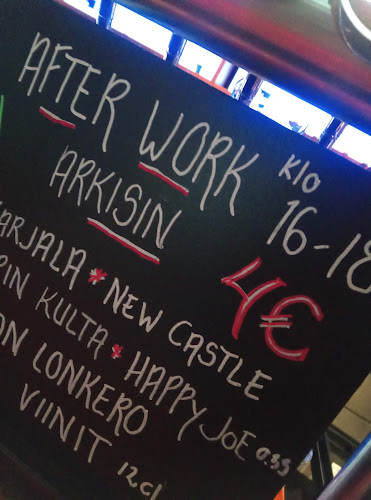 AFTER WORK KLO
ARKISIN 16-18
4€
ARJALA * NEW CASTLE
PIN KULTA * HAPPY JOE 0.33
ON LONKERO
VIINIT 12cl